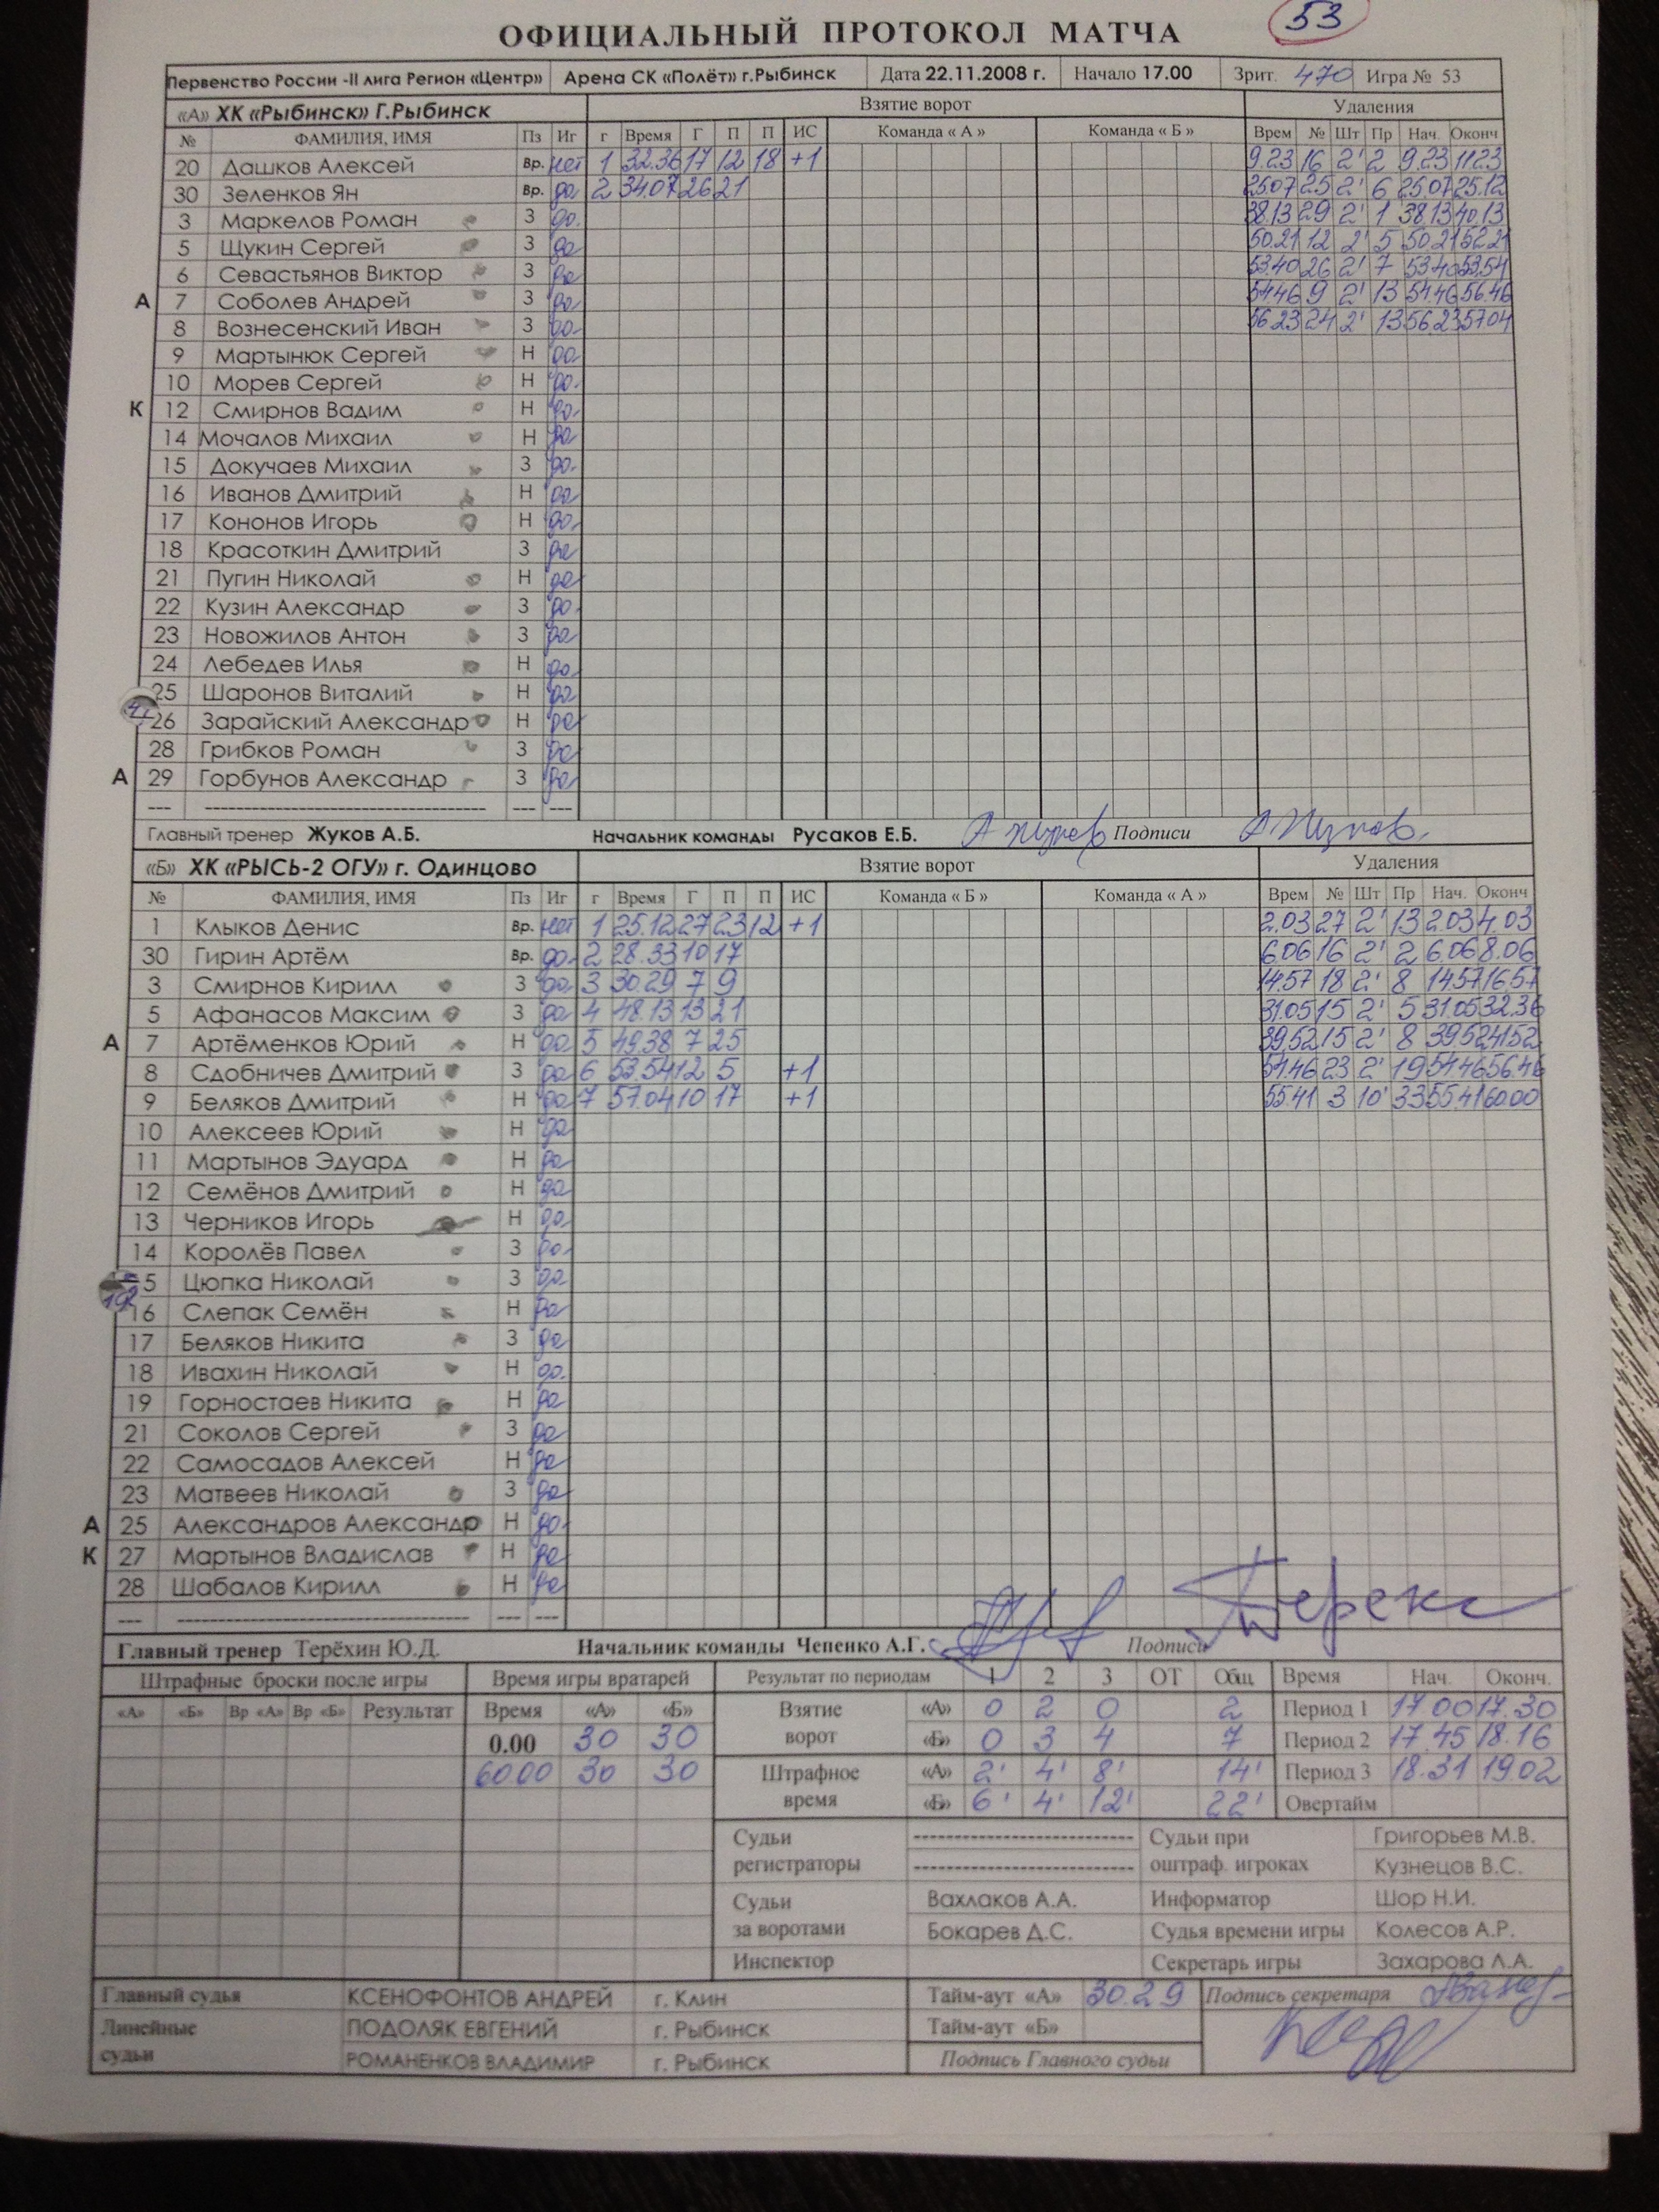 53
ОФИЦИАЛЬНЫЙ ПРОТОКОЛ МАТЧА
Первенство России -II лига Регион «Центр» Арена СК «Полёт» г.Рыбинск Дата 22.11.2008 г. Начало 17.00 Зрит. 470 Игра № 53
«А» ХК «Рыбинск» Г.Рыбинск Взятие ворот Удаления
№ ФАМИЛИЯ, ИМЯ Пз Иг г Время Г П П ИС Команда « А » Команда « Б » Врем № Шт Пр Нач. Оконч
20 Дашков Алексей Вр. нет 1 32.36 17 12 18 +1 9.23 16 2' 2 9.23 11.23
30 Зеленков Ян Вр. да 2 34.07 26 21 25.07 25 2' 6 25.07 25.12
3 Маркелов Роман З да 38.13 29 2' 1 38.13 40.13
5 Щукин Сергей З да 50.21 12 2' 5 50.21 52.21
6 Севастьянов Виктор З да 53.40 26 2' 7 53.40 53.54
А 7 Соболев Андрей З да 54.46 9 2' 13 54.46 56.46
8 Вознесенский Иван З да 56.23 24 2' 13 56.23 57.04
9 Мартынюк Сергей Н да
10 Морев Сергей Н да
К 12 Смирнов Вадим Н да
14 Мочалов Михаил Н да
15 Докучаев Михаил З да
16 Иванов Дмитрий Н да
17 Кононов Игорь Н да
18 Красоткин Дмитрий З да
21 Пугин Николай Н да
22 Кузин Александр З да
23 Новожилов Антон З да
24 Лебедев Илья Н да
25 Шаронов Виталий Н да
26 Зарайский Александр Н да
28 Грибков Роман З да
А 29 Горбунов Александр З да
--- ---------------------------------- --- ---
Главный тренер Жуков А.Б. Начальник команды Русаков Е.Б. Подписи
«Б» ХК «РЫСЬ-2 ОГУ» г. Одинцово Взятие ворот Удаления
№ ФАМИЛИЯ, ИМЯ Пз Иг г Время Г П П ИС Команда « Б » Команда « А » Врем № Шт Пр Нач. Оконч
1 Клыков Денис Вр. нет 1 25.12 27 23 12 +1 2.03 27 2' 13 2.03 4.03
30 Гирин Артём Вр. да 2 28.33 10 17 6.06 16 2' 2 6.06 8.06
3 Смирнов Кирилл З да 3 30.29 7 9 14.57 18 2' 8 14.57 16.57
5 Афанасов Максим З да 4 48.13 13 21 31.05 15 2' 5 31.05 32.36
А 7 Артёменков Юрий Н да 5 49.38 7 25 39.52 15 2' 8 39.52 41.52
8 Сдобничев Дмитрий З да 6 53.54 12 5 +1 54.46 23 2' 19 54.46 56.46
9 Беляков Дмитрий Н да 7 57.04 10 17 +1 55.41 3 10' 33 55.41 60.00
10 Алексеев Юрий Н да
11 Мартынов Эдуард Н да
12 Семёнов Дмитрий Н да
13 Черников Игорь Н да
14 Королёв Павел З да
5 Цюпка Николай З да
16 Слепак Семён Н да
17 Беляков Никита З да
18 Ивахин Николай Н да
19 Горностаев Никита Н да
21 Соколов Сергей З да
22 Самосадов Алексей Н да
23 Матвеев Николай З да
А 25 Александров Александр Н да
К 27 Мартынов Владислав Н да
28 Шабалов Кирилл Н да
--- ---------------------------------- --- ---
Главный тренер Терёхин Ю.Д. Начальник команды Чепенко А.Г. Подписи
Штрафные броски после игры Время игры вратарей Результат по периодам 1 2 3 ОТ Общ Время Нач. Оконч.
«А» «Б» Вр «А» Вр «Б» Результат Время «А» «Б» Взятие «А» 0 2 0 2 Период 1 17.00 17.30
0.00 30 30 ворот «Б» 0 3 4 7 Период 2 17.45 18.16
60.00 30 30 Штрафное «А» 2' 4' 8' 14' Период 3 18.31 19.02
время «Б» 6' 4' 12' 22' Овертайм
Судьи ---------------------------- Судьи при Григорьев М.В.
регистраторы ---------------------------- оштраф. игроках Кузнецов В.С.
Судьи Вахлаков А.А. Информатор Шор Н.И.
за воротами Бокарев Д.С. Судья времени игры Колесов А.Р.
Инспектор Секретарь игры Захарова Л.А.
Главный судья КСЕНОФОНТОВ АНДРЕЙ г. Клин Тайм-аут «А» 30.29 Подпись секретаря
Линейные ПОДОЛЯК ЕВГЕНИЙ г. Рыбинск Тайм-аут «Б»
судьи РОМАНЕНКОВ ВЛАДИМИР г. Рыбинск Подпись Главного судьи